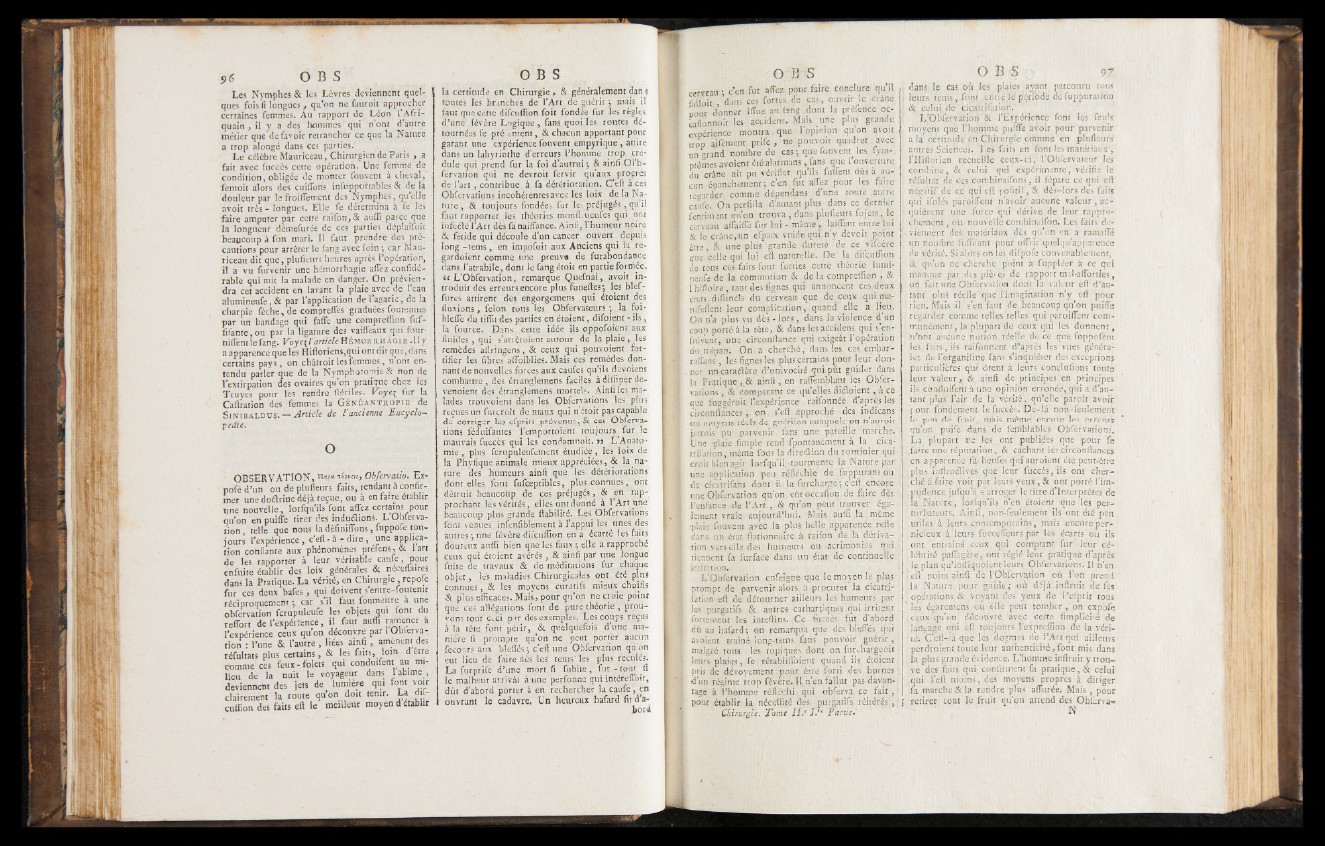 96 O B S
Les Nymphes & les Lèvres deviennent quel-
ques fois si longues, qu'on ne sauroit approcher
certaines femmes. Au rapport de Léon l'Afri-
quain, il y a des hommes qui n'ont d'autre
métier que de savoir retrancher ce que la Nature
a trop alongé dans ces parties.
Le célèbre Mauriceau, Chirurgien de Paris, a
fait avec succès cette opération. Une femme de
condition, obligée de monter souvent à cheval,
sentoit alors des cuissons insupportables & de la
douleur par le froissement des Nymphes, qu'elle
avoit très-longues. Elle se détermina à se les
faire amputer par cette raison, & aussi parce que
la longueur démesurée de ces parties déplaisoit
beaucoup à son mari. Il faut prendre des pré-
cautions pour arrêter le sang avec soin; car Mau-
riceau dit que, plusieurs heures après l'opération,
il a vu survenir une hémorrhagie assez considé-
rable qui mit la malade en danger. On prévien-
dra cet accident en lavant la plaie avec de l'eau
alumineuse, & par l'application de l'agaric, de la
charpie sèche, de compresses graduées soutenues
par un bandage qui fasse une compression suf-
fisante, ou par la ligature des vaisseaux qui four-
nissent le sang. Voyez l'article HÉMORRHAGIE. Il y
a apparence que les Historiens, qui ont dit que, dans
certains pays, on châtroit les femmes, n'ont en-
tendu parler que de la Nymphotomie & non de
l'extirpation des ovaires qu'on pratique chez les
Truyes pour les rendre stériles. Voyez sur la
Castration des femmes la GÉNÉANTROPIE de
SINIBALDUS. — Article de l'ancienne Encyclo-
pédie.
O
OBSERVATION, Observatio. Ex-
posé d'un ou de plusieurs faits, tendant à confir-
mer une doctrine déjà reçue, ou à en faire établir
une nouvelle, lorsqu'ils sont assez certains pour
qu'on en puisse tirer des inductions. L'Observa-
tion, telle que nous la définissons, suppose tou-
jours l'expérience, c'est-à-dire, une applica-
tion constante aux phénomènes présens, & l'art
de les rapporter à leur véritable cause, pour
ensuite établir des loix générales & nécessaires
dans la Pratique. La vérité, en Chirurgie, repose
sur ces deux bases, qui doivent s'entre-soutenir
réciproquement; car s'il faut soumettre à une
observation scrupuleuse les objets qui sont du
ressort de l'expérience, il faut aussi ramener à
l'expérience ceux qu'on découvre par l'Observa-
tion: l'une & l'autre, liées ainsi, amènent des
résultats plus certains, & les faits, loin d'être
comme ces feux-folets qui conduisent au mi-
lieu de la nuit le voyageur dans l'abîme,
deviennent des jets de lumière qui font voir
clairement la route qu'on doit tenir. La dis-
cussion des faits est le meilleur moyen d'établir
O B S
la certitude en Chirurgie, & généralement dans
toutes les branches de l'Art de guérir; mais il
faut que cette discussion soit fondée sur les règles
d'une sévère Logique, sans quoi les routes dé-
tournées se présentent, & chacun apportant pour
garant une expérience souvent empyrique, attire
dans un labyrinthe d'erreurs l'homme trop cré-
dule qui prend sur la foi d'autrui; & ainsi l'Ob-
servation qui ne devroit servir qu'aux progrès
de l'art, contribue à sa détérioration. C'est à ces
Observations incohérentes avec les loix de la Na-
ture, & toujours fondées sur les préjugés, qu'il
faut rapporter les théories monstrueuses qui ont
infecté l'Art dès sa naissance. Ainsi, l'humeur noire
& fétide qui découle d'un cancer ouvert depuis
long-tems, en imposoit aux Anciens qui la re-
gardoient comme une preuve de surabondance
dans l'atrabile, dont le sang étoit en partie formée.
« L'Observation, remarque Quesnai, avoit in-
troduit des erreurs encore plus funestes; les bles-
sures attirent des engorgemens qui étoient des
fluxions, selon tous les Observateurs; la foi-
blesse du tissu des parties en étoient, disoient-ils,
la source. Dans cette idée ils opposoient aux
fluides, qui s'arrêtoient autour de la plaie, les
remèdes astringens, & ceux qui pouvoient for-
tifier les fibres affoiblies. Mais ces remèdes don-
nant de nouvelles forces aux causes qu'ils devoient
combattre, des étranglemens faciles à dissiper de-
venoient des étranglemens mortels. Ainsi les ma-
lades trouvoient dans les Observations les plus
reçues un surcroît de maux qui n'étoit pas capable
de corriger les esprits prévenus, & ces Observa-
tions séduisantes l'emportoient toujours sur le
mauvais succès qui les condamnoit. » L'Anato-
mie, plus scrupuleusement étudiée, les loix de
la Physique animale mieux appréciées, & la na-
ture des humeurs ainsi que les détériorations
dont elles sont susceptibles, plus connues, ont
détruit beaucoup de ces préjugés, & en rap-
prochant les vérités, elles ont donné à l'Art une
beaucoup plus grande stabilité. Les Observations
sont venues insensiblement à l'appui les unes des
autres; une sévère discussion en a écarté les faits
douteux aussi bien que les faux; elle a rapproché
ceux qui étoient avérés, & ainsi par une longue
suite de travaux & de méditations sur chaque
objet, les maladies Chirurgicales ont été plus
connues, & les moyens curatifs mieux choisis
& plus efficaces. Mais, pour qu'on ne croie point
que ces allégations sont de pure théorie, prou-
vons tout ceci par des exemples. Les coups reçus
à la tête font périr, & quelquefois d'une ma-
nière si prompte qu'on ne peut porter aucun
secours aux blessés; c'est une Observation qu'on
eut lieu de faire dès les tems les plus reculés.
La surprise d'une mort si subite, sur-tout si
le malheur arrivât à une personne qui intéressoit,
dût d'abord porter à en rechercher la cause, en
ouvrant le cadavre. Un heureux hasard fit d'a-
bord
O B S
cerveau; c'en fut assez pour faire conclure qu'il
falloit, dans ces sortes de cas, ouvrir le crâne
pour donner issue au sang dont la présence oc-
casionnoit les accidens. Mais une plus grande
expérience montra que l'opinion qu'on avoit
trop aisément prise, ne pouvoit quadrer avec
un grand nombre de cas; que souvent les symp-
tômes avoient été alarmans, sans que l'ouverture
du crâne ait pu vérifier qu'ils fussent dûs à au-
cun épanchement; c'en fut assez pour les faire
regarder comme dépendans d'une toute autre
cause. On persista d'autant plus dans ce dernier
sentiment qu'on trouva, dans plusieurs sujets, le
cerveau affaissé sur lui-même, laissant entre lui
& le crâne, un espace vuide qui n'y devoit point
être, & une plus grande dureté de ce viscère
que celle qui lui est naturelle. De la discussion
de tous ces faits sont sorties cette théorie lumi-
neuse de la commotion & de la compression, &
l'histoire, tant des signes qui annoncent ces deux
états distincts du cerveau que de ceux qui ma-
nifestent leur complication, quand elle a lieu.
On n'a plus vu dès-lors, dans la violence d'un
coup porté à la tête, & dans les accidens qui s'en-
suivent, une circonstance qui exigeât l'opération
du trépan. On a cherché, dans les cas embar-
rassans, les signes les plus certains pour leur don-
ner un caractère d'univocité qui pût guider dans
la Pratique, & ainsi, en rassemblant les Obser-
vations, & comparant ce qu'elles disoient, à ce
que suggéroit l'expérience raisonnée d'après les
circonstances, on s'est approché des indicans
ou moyens réels de guérison auxquels on n'auroit
jamais pu parvenir sans une pareille marche.
Une plaie simple tend spontanément à la cica-
trisation, même sous la direction du routinier qui
croit bien agir lorsqu'il tourmente la Nature par
une application peu réfléchie de suppurans ou
de cicatrisans dont il la surcharge; c'est encore
une Observation qu'on eût occasion de faire dès
l'enfance de l'Art, & qu'on peut trouver éga-
lement vraie aujourd'hui. Mais aussi la même
plaie souvent avec la plus belle apparence reste
dans un état stationnaire à raison de la dériva-
tion vers elle des humeurs ou acrimonies qui
tiennent sa surface dans un état de continuelle
irritation.
L'Observation enseigne que le moyen le plus
prompt de parvenir alors à procurer la cicatri-
sation est de détourner ailleurs les humeurs par
les purgatifs & autres cathartiques qui irritent
fortement les intestins. Ce succès fut d'abord
dû au hasard; on remarqua que des blessés qui
avoient traîné long-tems sans pouvoir guérir,
malgré tous les topiques dont on surchargeoit
leurs plaies, se rétablissoient quand ils étoient
pris de dévoyement pour être sorti des bornes
d'un régime trop sévère. Il n'en fallut pas davan-
tage à l'homme réfléchi qui observa ce fait,
pour établir la nécessité des purgatifs réitérés,
Chirurgie. Tome II.e I.re Partie.
O B S 97
dans le cas où les plaies ayant parcouru tous
leurs tems, sont entre le période de suppuration
& celui de cicatrisation.
L'Observation & l'Expérience sont les seuls
moyens que l'homme puisse avoir pour parvenir
à la certitude en Chirurgie comme en plusieurs
autres Sciences. Les faits en sont les matériaux,
l'Historien recueille ceux-ci, l'Observateur les
combine, & celui qui expérimente, vérifie le
résultat de ces combinaisons, il sépare ce qui est
négatif de ce qui est positif, & dès-lors des faits
qui isolés paroissent n'avoir aucune valeur, ac-
quièrent une force qui dérive de leur rappro-
chement, ou nouvelle combinaison. Les faits de-
viennent des matériaux dès qu'on en a ramassé
un nombre suffisant pour offrir quelqu'apparence
de vérité. Si alors on les dispose convenablement,
& qu'on ne cherche point à suppléer à ce qui
manque par des pièces de rapport mal-assorties,
on fait une Observation dont la valeur est d'au-
tant plus réelle que l'imagination n'y est pour
rien. Mais il s'en faut de beaucoup qu'on puisse
regarder comme telles celles qui paroissent com-
munément, la plupart de ceux qui les donnent,
n'ont aucune notion réelle de ce que supposent
les faits, ils raisonnent d'après les vues généra-
les de l'organisme sans s'inquiéter des exceptions
particulières qui ôtent à leurs conclusions toute
leur valeur, & ainsi de principes en principes
ils conduisent à une opinion erronée, qui a d'au-
tant plus l'air de la vérité, qu'elle paroît avoir
pour fondement le succès. De-là non-seulement
le peu de fruit, mais même encore les erreurs
qu'on puise dans de semblables Observations.
La plupart ne les ont publiées que pour se
faire une réputation, & cachant les circonstances
en apparence fâcheuses qui auroient été peut-être
plus instructives que leur succès, ils ont cher-
ché à faire voir par leurs yeux, & ont porté l'im-
pudence jusqu'à s'arroger le titre d'Interprètes de
la Nature, lorsqu'ils n'en étoient que les per-
turbateurs. Ainsi, non-seulement ils ont été peu
utiles à leurs contemporains, mais encore per-
nicieux à leurs successeurs par les écarts où ils
ont entraîné ceux qui comptant sur leur cé-
lébrité passagère, ont réglé leur pratique d'après
le plan qu'indiquoient leurs Observations. Il n'en
est point ainsi de l'Observation où l'on prend
la Nature pour guide; où déjà instruit de ses
opérations & voyant des yeux de l'esprit tous
les égaremens où elle peut tomber, on expose
ceux qu'on découvre avec cette simplicité de
langage qui est toujours l'expression de la véri-
té. C'est-là que les dogmes de l'Art qui ailleurs
perdroient toute leur authenticité, sont mis dans
la plus grande évidence. L'homme instruit y trou-
ve des faits qui confirment sa pratique, & celui
qui l'est moins, des moyens propres à diriger
sa marche & la rendre plus assurée. Mais, pour
retirer tout le fruit qu'on attend des Observa-
N